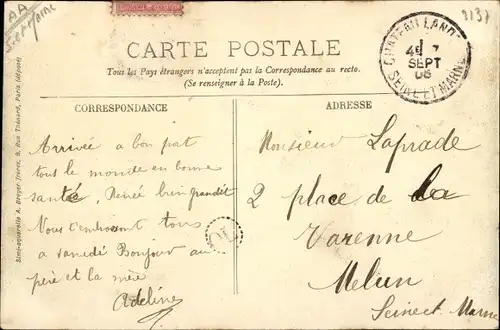 AA
Set Marne
9137
CARTE POSTALE
Tous les Pays étrangers n'acceptent pas la Correspondance au recto.
(Se renseigner à la Poste).
CHATEAU LANDON
7
SEPT
SEINE ET MARNE
CORRESPONDANCE
ADRESSE
Arrivée a bon port
tous le monde en bonne
santé, Renée bien grandit
Vous t'embrassent tous
a samedi Bonjour au
père et la mère
Adeline
Monsieur Laprade
2 place de la
Varenne
Melun
Seine et Marne
Simi-aquarelle A. Breger frères, 9, Rue Thénard, Paris (déposé)